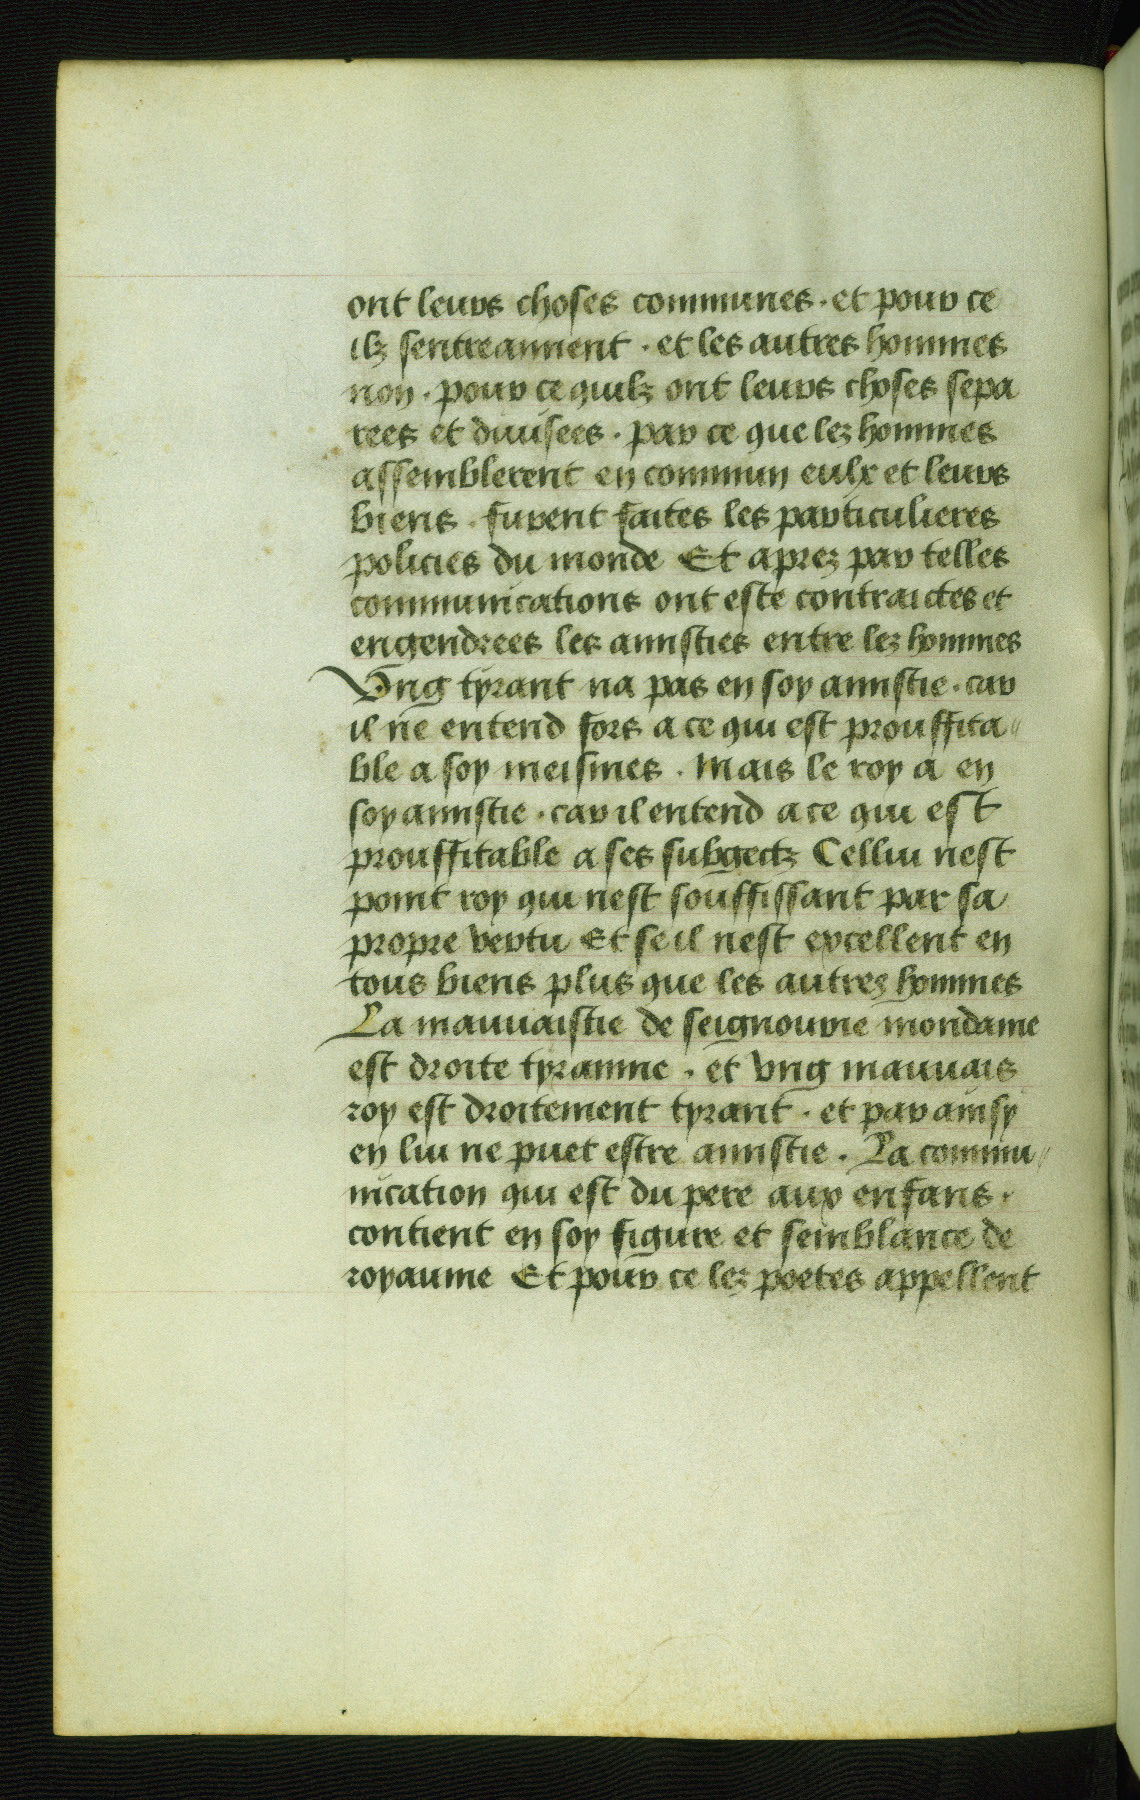 ont leurs choses communes · et pour ce
ilz sentreaiment · et les autres hommes
non · pour ce quilz ont leurs choses sepa
rees et diuisees · par ce que lez hommes
assemblerent en commun eulx et leurs
biens · furent faites les particulieres
policies du monde Et aprez par telles
communications ont este contraictes et
engendrees les amisties entre lez hommes
Ung tyrant na pas en soy amistie · car
il ne entend fors a ce qui est prouffita〃
ble a soy meismes · Mais le roy a en
soy amistie · car il entend a ce qui est
prouffitable a ses subgectz Cellui nest
point roy qui nest souffissant par sa
propre vertu Et se il nest excellent en
tous biens plus que les autrez hommes
La mauuaistie de seignourie mondaine
est droite tyrannie · et vng mauuais
roy est droitement tyrant · et par ainsy
en lui ne puet estre amistie · La commu〃
nication qui est du pere aux enfans ·
contient en soy figure et semblance de
royaume Et pour ce lez poetes appellent